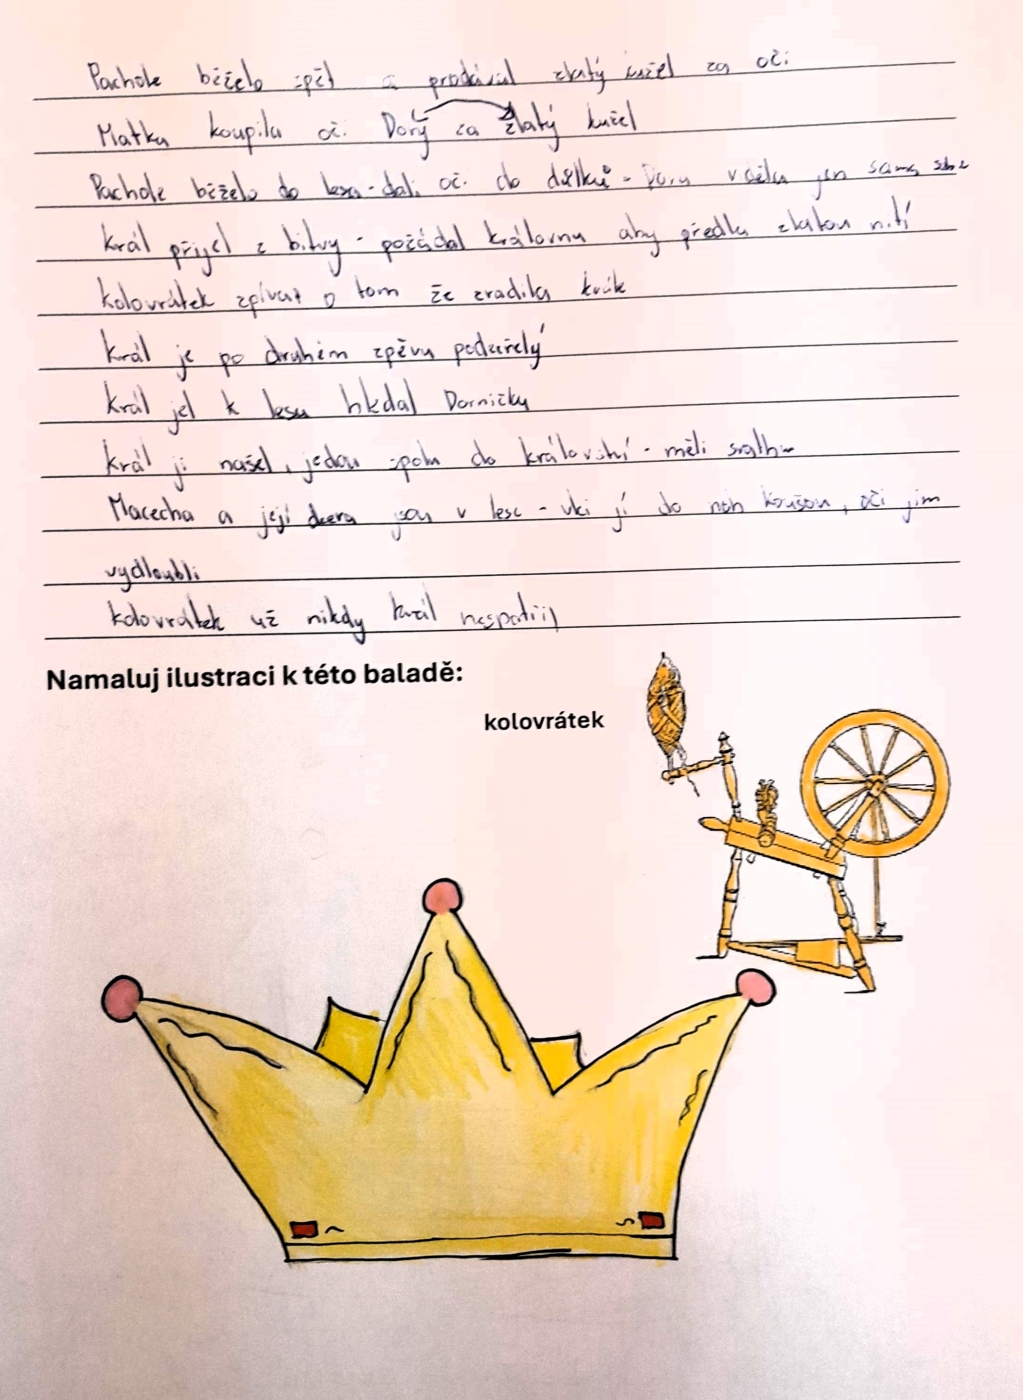 Pachole běželo zpět a prodával zlatý kužel za oči
Matka koupila oči Dory za zlatý kužel
Pachole běželo do lesa - dali oči do důlků - Dora viděla jen sama sebe
Král přijel z bitvy - požádal královnu aby předla zlatou nití
kolovrátek zpívat o tom že zradila král
Král je po druhém zpěvu podezřelý
Král jel k lesu hledal Dorničky
Král ji našel, jedou spolu do království - měli svatbu
Macecha a její dcera jsou v lese - vlci jí do noh koušou, oči jim
vydloubli
kolovrátek už nikdy král nespatřil
Namaluj ilustraci k této baladě:
kolovrátek